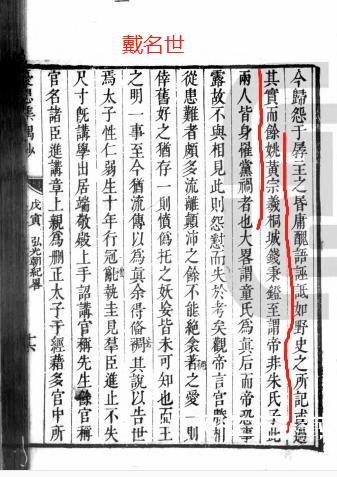 戴名世
今歸怨于孱王之昏庸醜語誣詆如野史之所記或過
其實而餘姚黃宗羲桐城錢秉鐙至謂帝非朱氏子此
兩人皆身罹黨禍者也大畧謂童氏為真后而帝恐事
露故不與相見此則怨懟而失於考矣觀帝言宮
從患難者頗多流離顛沛之餘不能絕衾裯之愛一則
倖舊好之猶存一則憤偽托之妖妄皆未可知也而王
之明一事至今猶流傳以為真余得備稠其說以告世
焉太子性仁弱生十年行冠禮執圭見羣臣進止不失
尺寸旣講學出居端敬殿上手詔講官稱先生餘官稱
官名諸臣進講章上親為刪正太子于經藉多官中所
戊寅 弘光朝紀畧